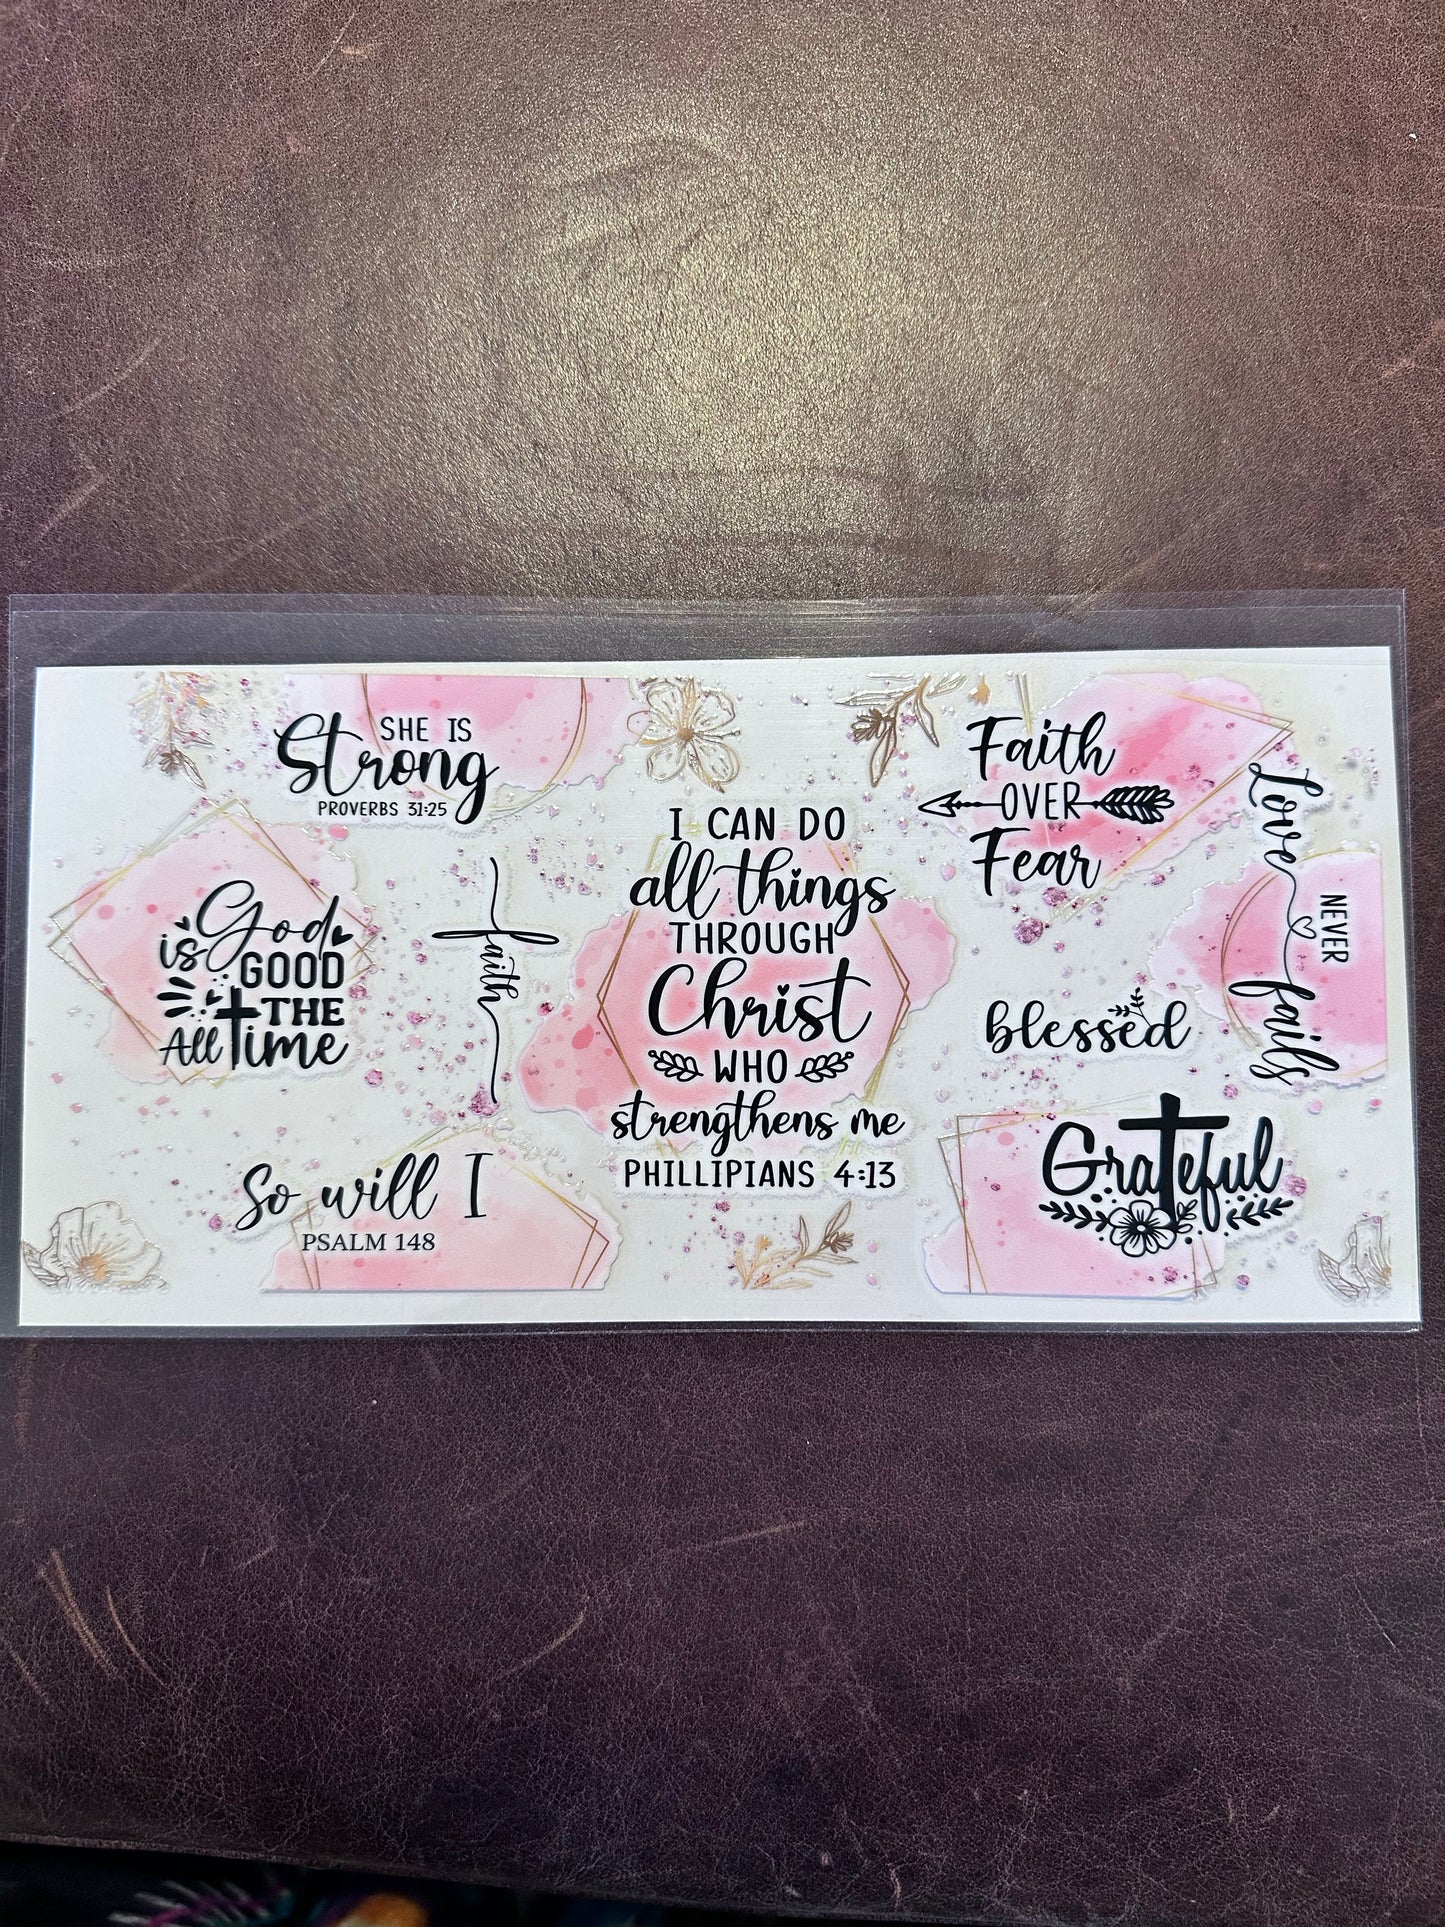 SHE IS
Strong
PROVERBS 31:25
God
is GOOD
THE
All time
faith
So will I
PSALM 148
I CAN DO
all things
THROUGH
Christ
WHO
strengthens me
PHILLIPIANS 4:13
Faith
OVER
Fear
Love
NEVER
fails
blessed
Grateful